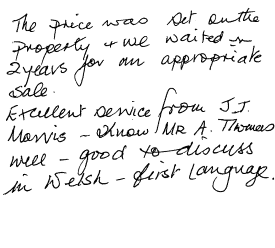 The price was set on the
property + we waited
2 years for an appropriate
sale.
Excellent service from J.J.
Morris - Know Mr A. Thomas
well - good to discuss
in Welsh - first language.